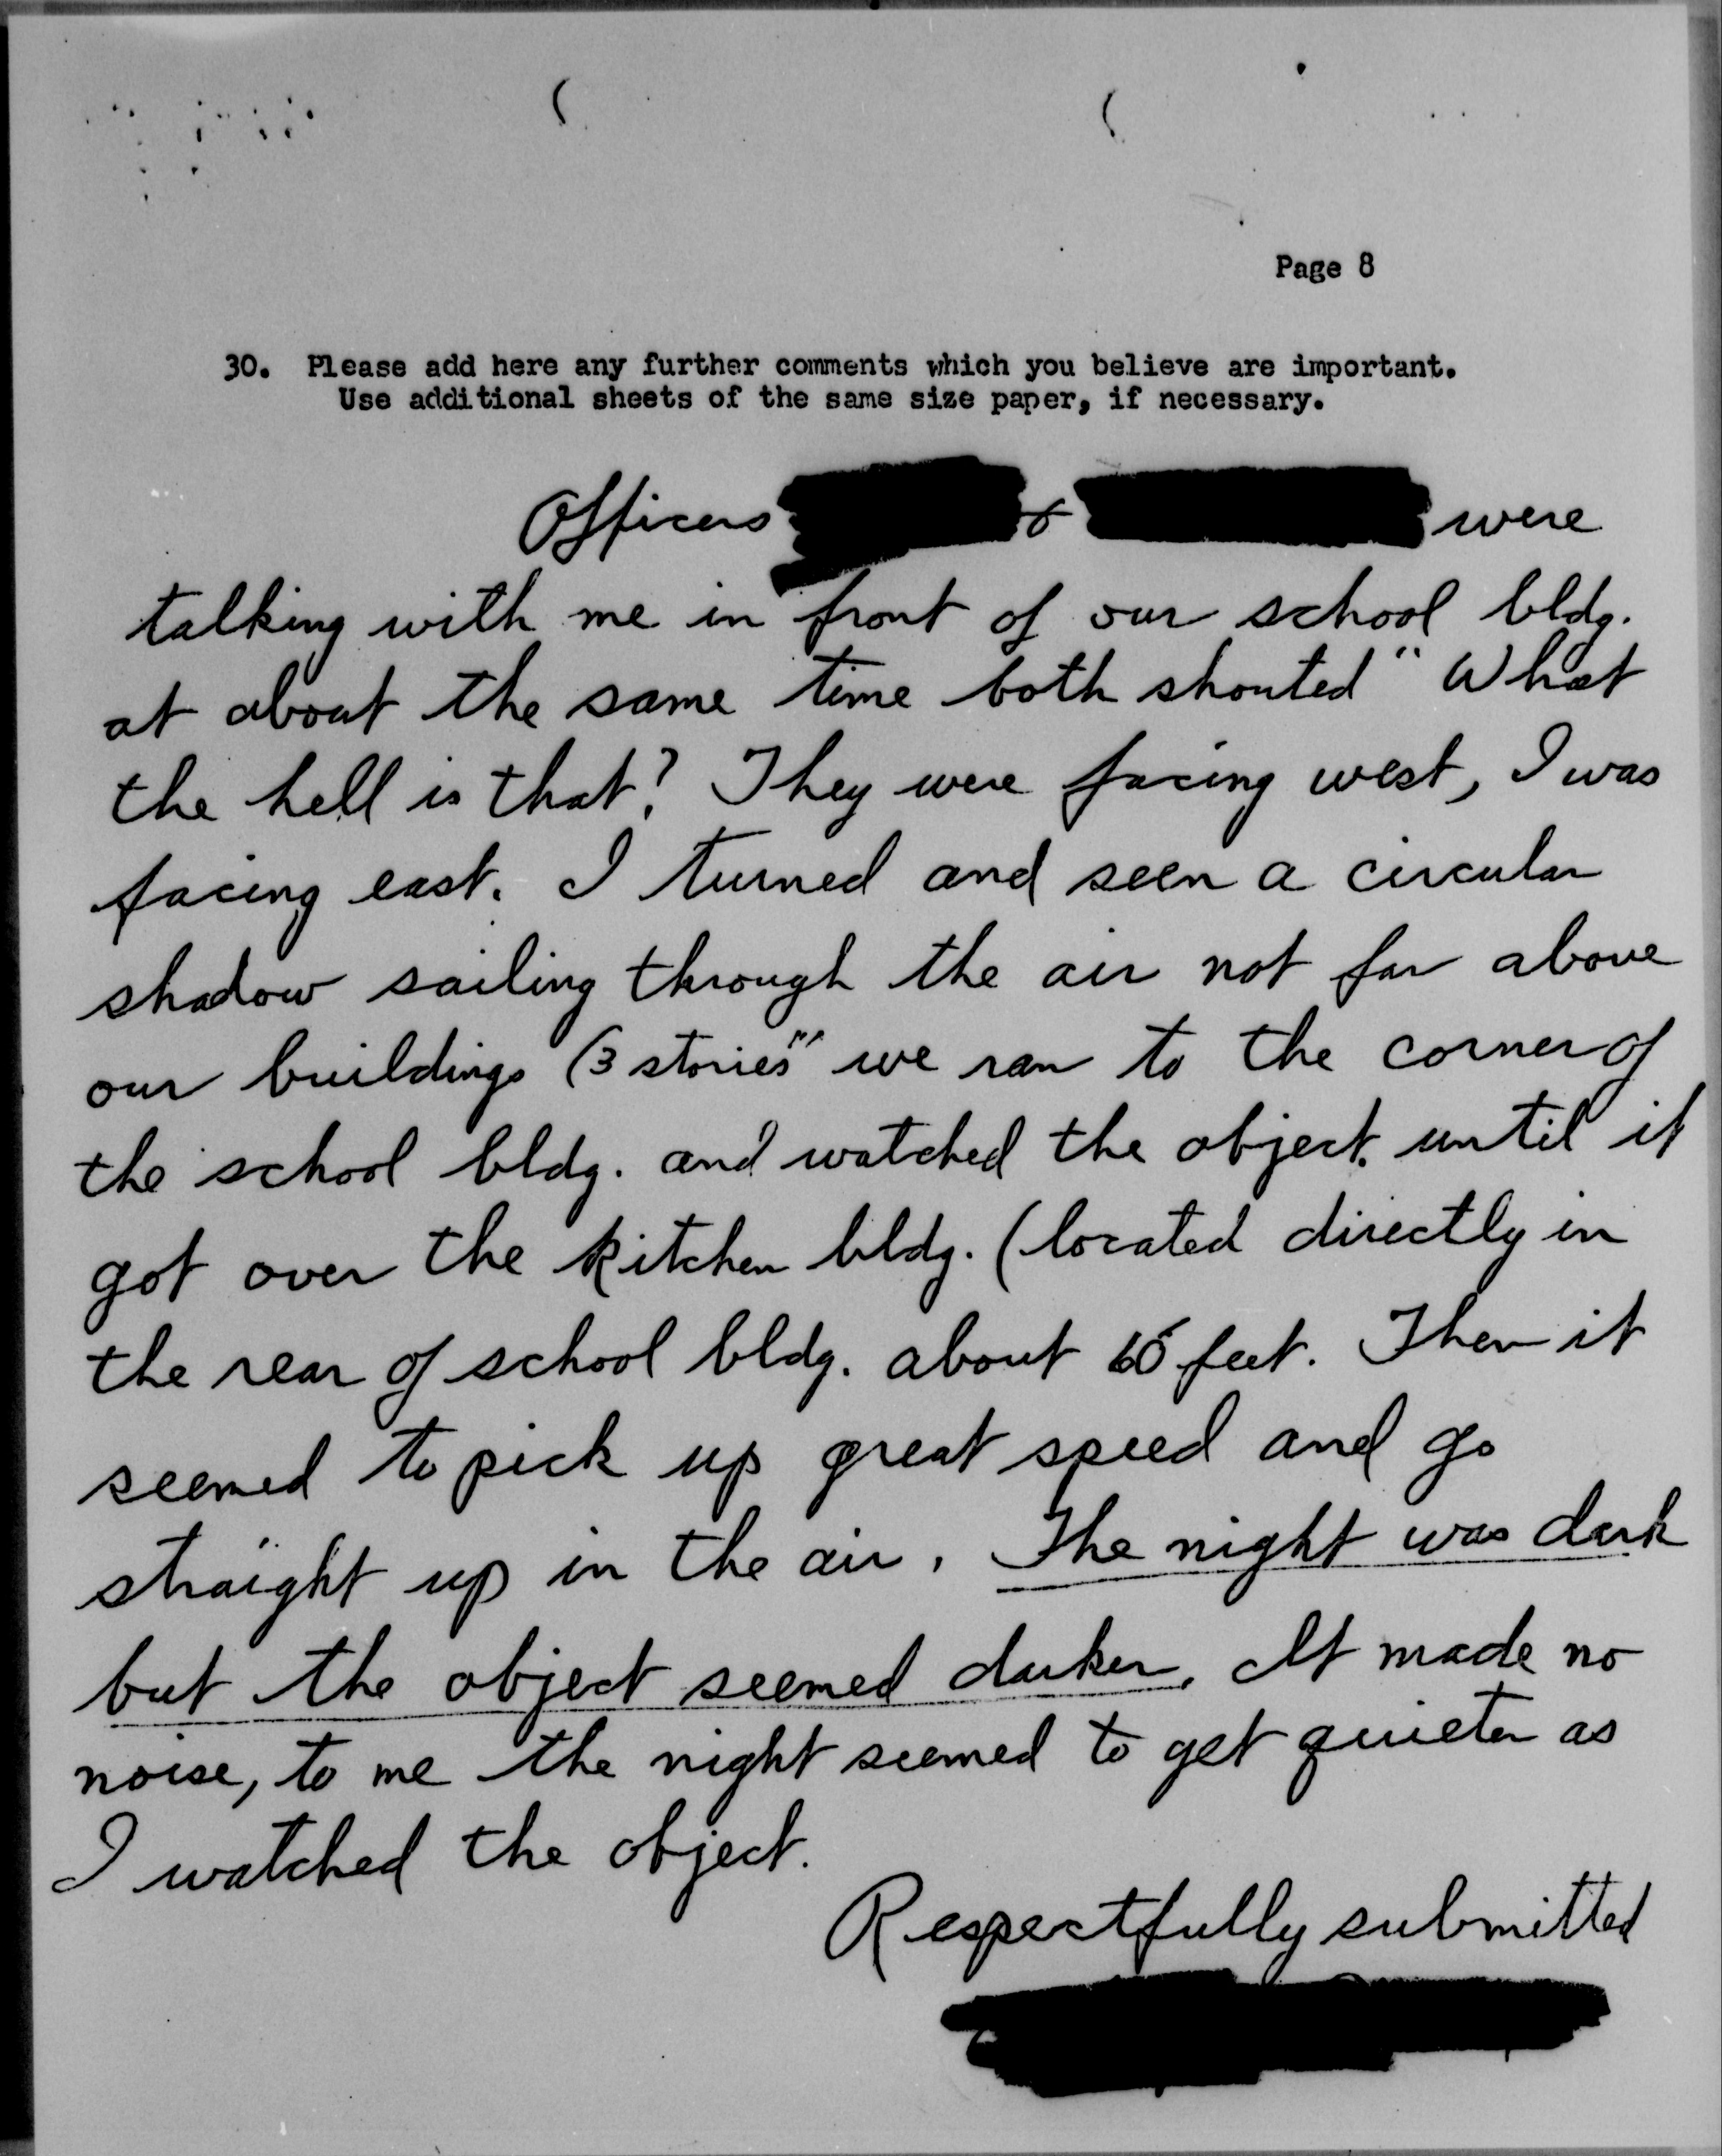 Page 8
30. Please add here any further comments which you believe are important.
Use additional sheets of the same size paper, if necessary.
Officers & were
talking with me in front of our school bldg.
at about the same time both shouted "What
the hell is that? They were facing west, I was
facing east. I turned and seen a circular
shadow sailing through the air not far above
our buildings (3 stories" we ran to the corner of
the school bldg. and watched the object until it
got over the kitchen bldg. (located directly in
the rear of school bldg. about feet. Then it
seemed to pick up great speed and go
straight up in the air. The night was dark
but the object seemed darker. It made no
noise, to me the night seemed to get quieter as
I watched the object.
Respectfully submitted